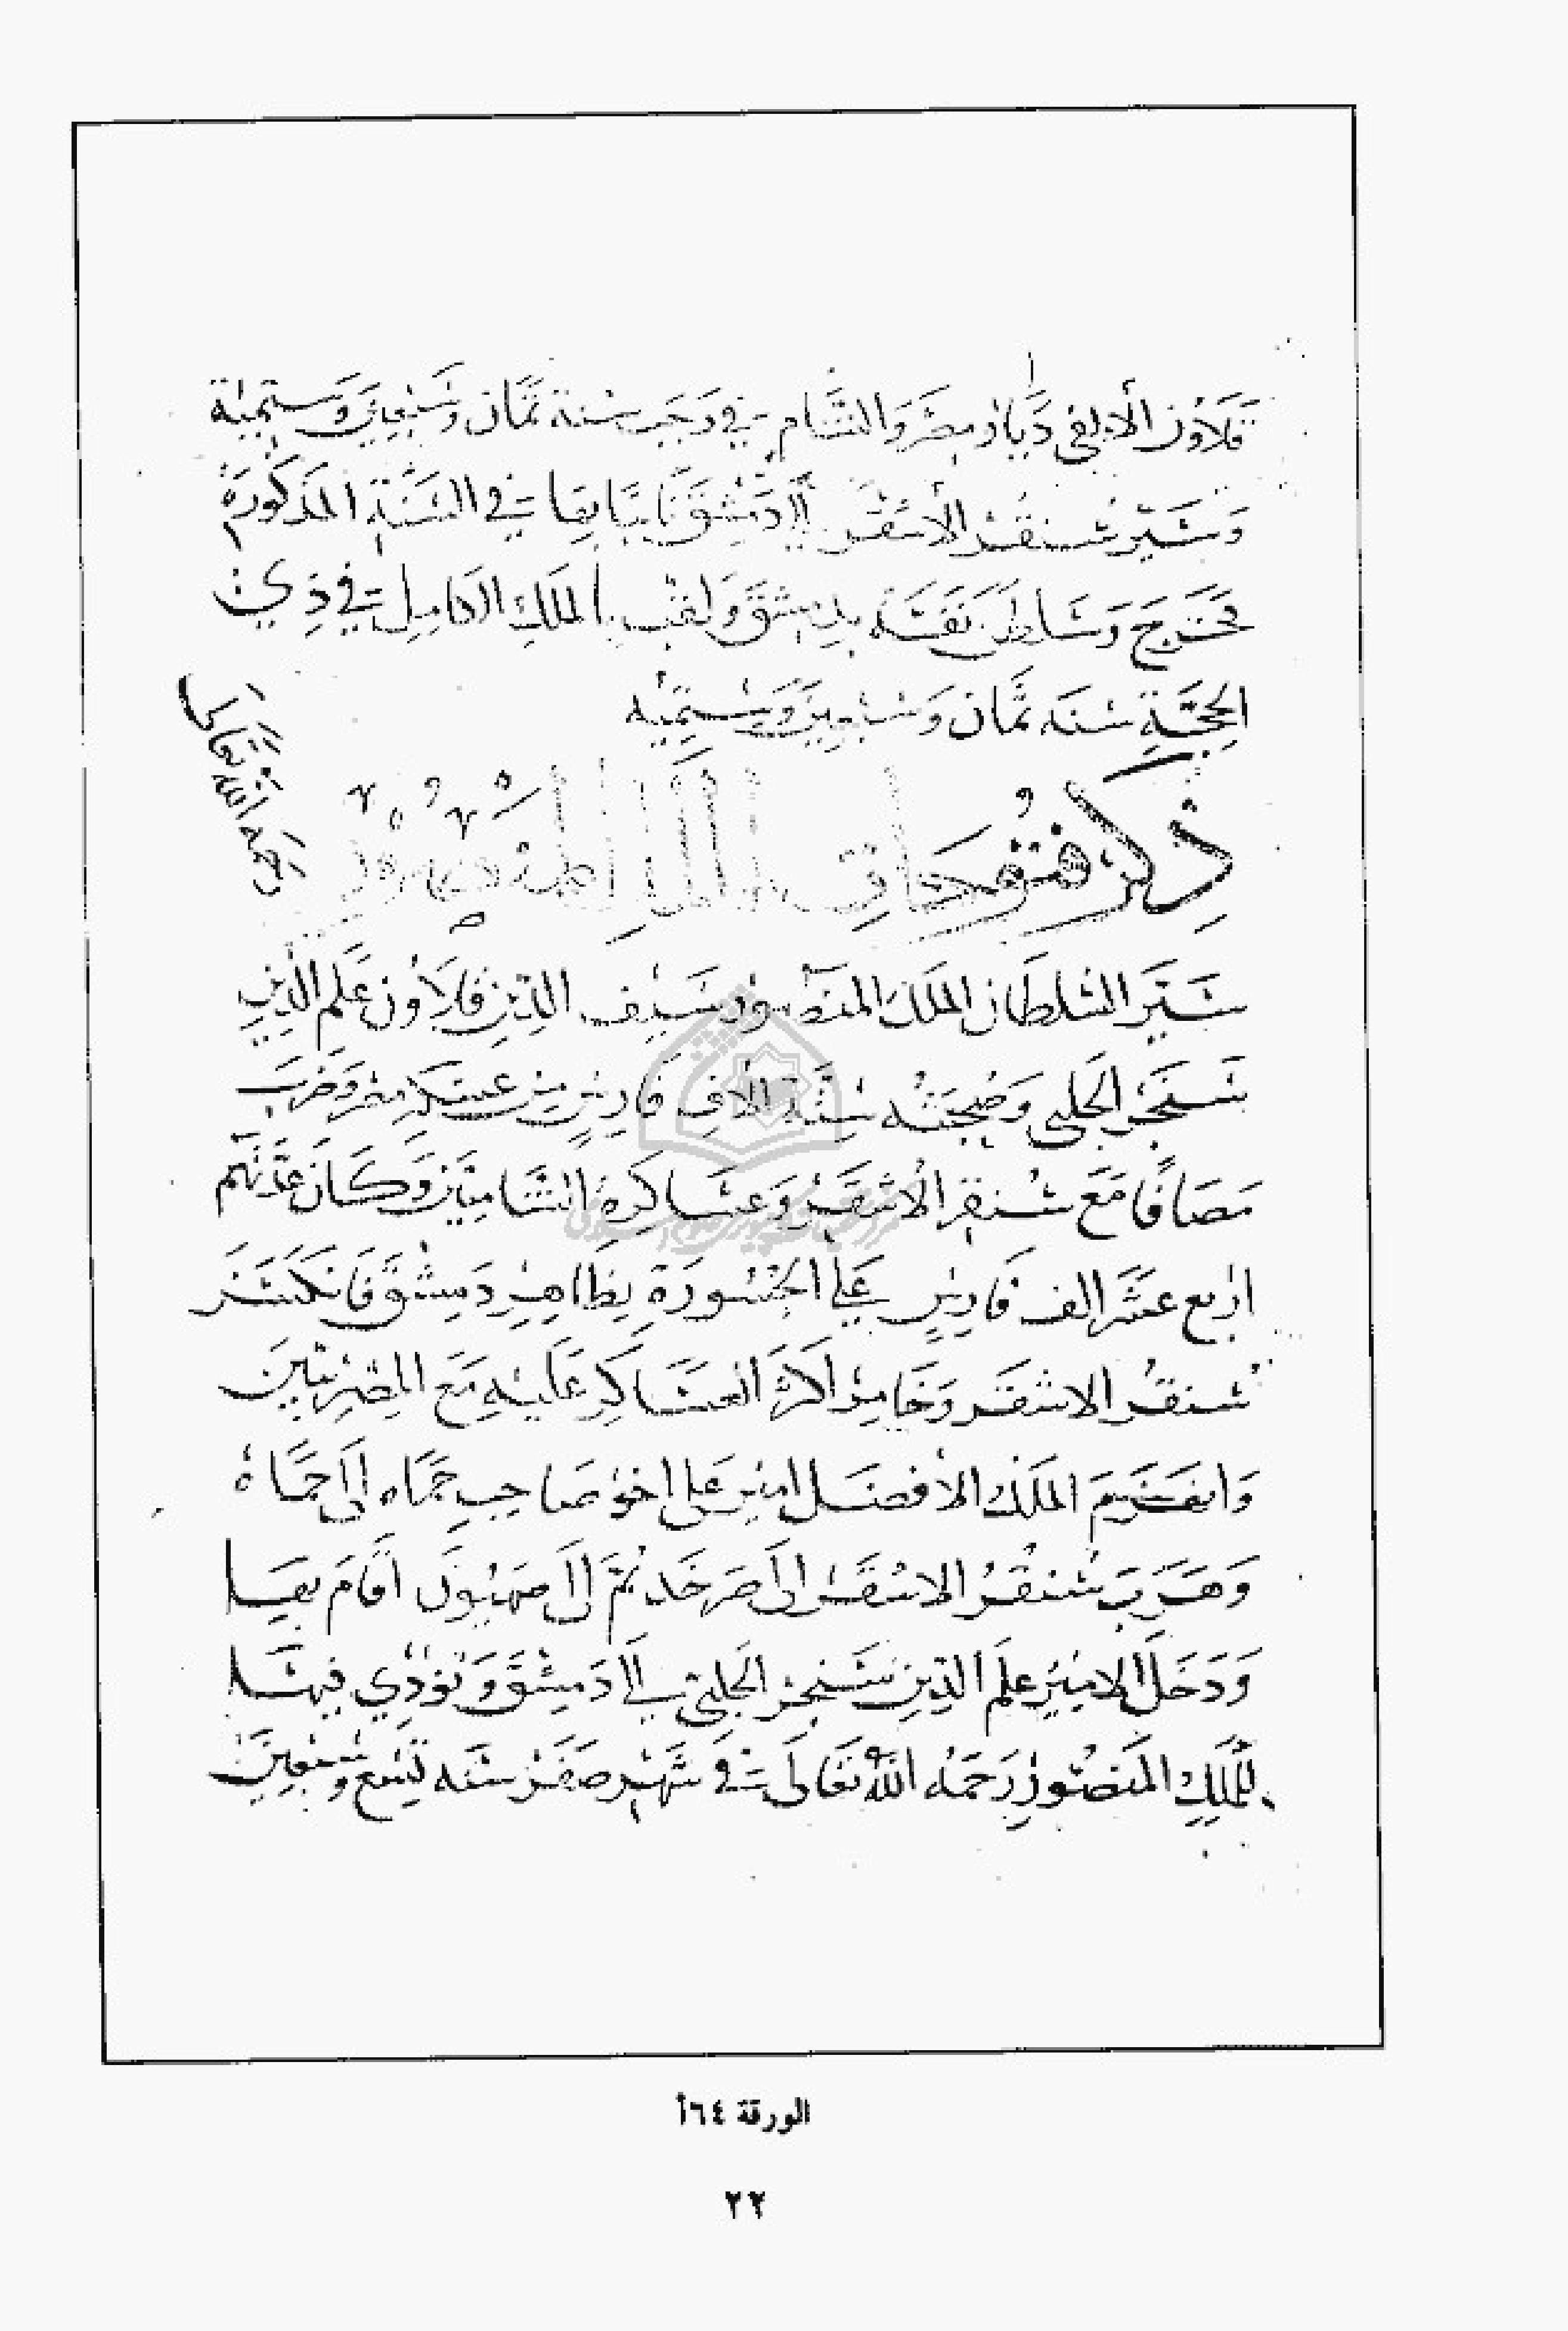 قَلَاوُن الألفى دَيَار مِصْرَ وَالشَّام في رَجَب سَنة ثَمَان وَسَبْعِين وَستمِئة
وَسَيَّر سُنقُر الأشقَر إلى دِمَشق نَائبًا بِهَا في السَّنَةِ المَذكُورَة
فخَرَج وَسَلطَن نَفسَه بدِمشقَ وَلقب بالملكِ الكامِل في ذِي
الحِجَّةِ سَنَه ثَمان وَسَبْعِين وَستمِئه
ذكر فتوحات الملك المنصور
رحمه الله تعالى
سَيَّرَ السُلطَان المَلك المنصُور سَيْف الدّين قلاوُن عَلَم الدِّين
سَنجَر الحَلبى وَصُحبَتُه سِتَّة الاف فَارِسٍ مِن عَسكر مصر وضرَب
مَصَافًا مَعَ سُنقر الأشقَر وَعَسَاكِرِهِ الشَّامِيّين وَكَانَ عدَّتَهُم
اربع عشَر الف فَارِسٍ على الجُسُورَةِ بِظَاهِر دِمَشق فَانكَسَرَ
سُنقُر الاشقَر وَخَامر اكثر العسَاكر عَلَيْهِ مَعَ المِصْرِيّينَ
وَانهَزَمَ المَلكُ الأفضَل امير على اخو صَاحِب حَمَاه إلى حَمَاة
وَهَرَبَ سُنقُر الاشقر الى صَرخَد ثمّ إلى صِهيُون أقَامَ بهَا
وَدَخَلَ الامِيرُ علم الدين سَنجر الحَلبى إلى دمَشقَ وَنُودِي فيهَا
للمَلِكِ المَنصُورِ رَحمَهُ اللهُ تعَالى في شَهر صَفَر سَنَه تِسْع وسَبْعِين
الورقة ٦٤أ
٢٢